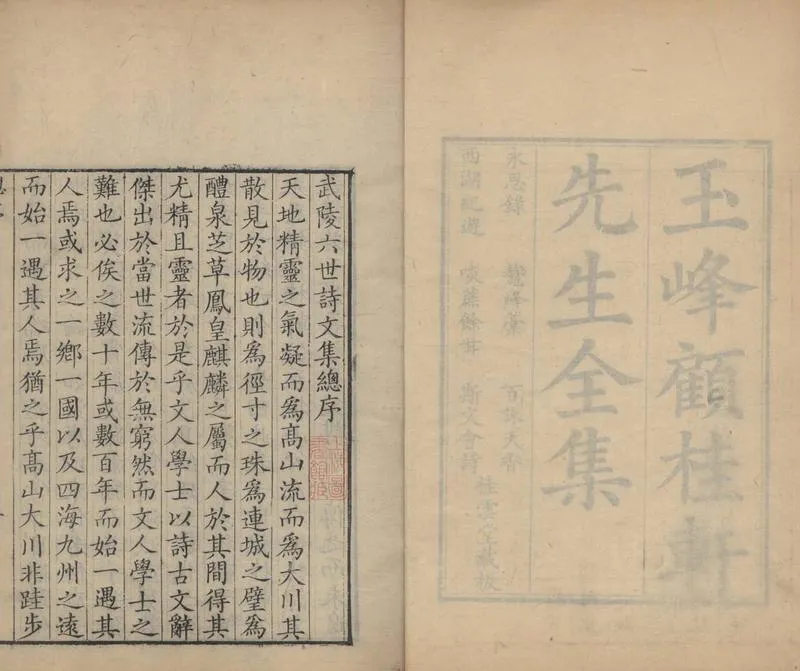 玉峰顧桂軒
先生全集
永思錄 鰲峰藁 百詠天香
西湖紀遊 餘 斯文會詩
桂雲堂藏板
武陵六世詩文集總序
天地精靈之氣凝而爲髙山流而爲大川其
散見於物也則爲徑寸之珠爲連城之璧爲
醴泉芝草鳳皇麒麟之屬而人於其間得其
尤精且靈者於是乎文人學士以詩古文辭
傑出於當世流傳於無窮然而文人學士之
難也必俟之數十年或數百年而始一遇其
人焉或求之一鄉一國以及四海九州之遠
而始一遇其人焉猶之乎髙山大川非跬步